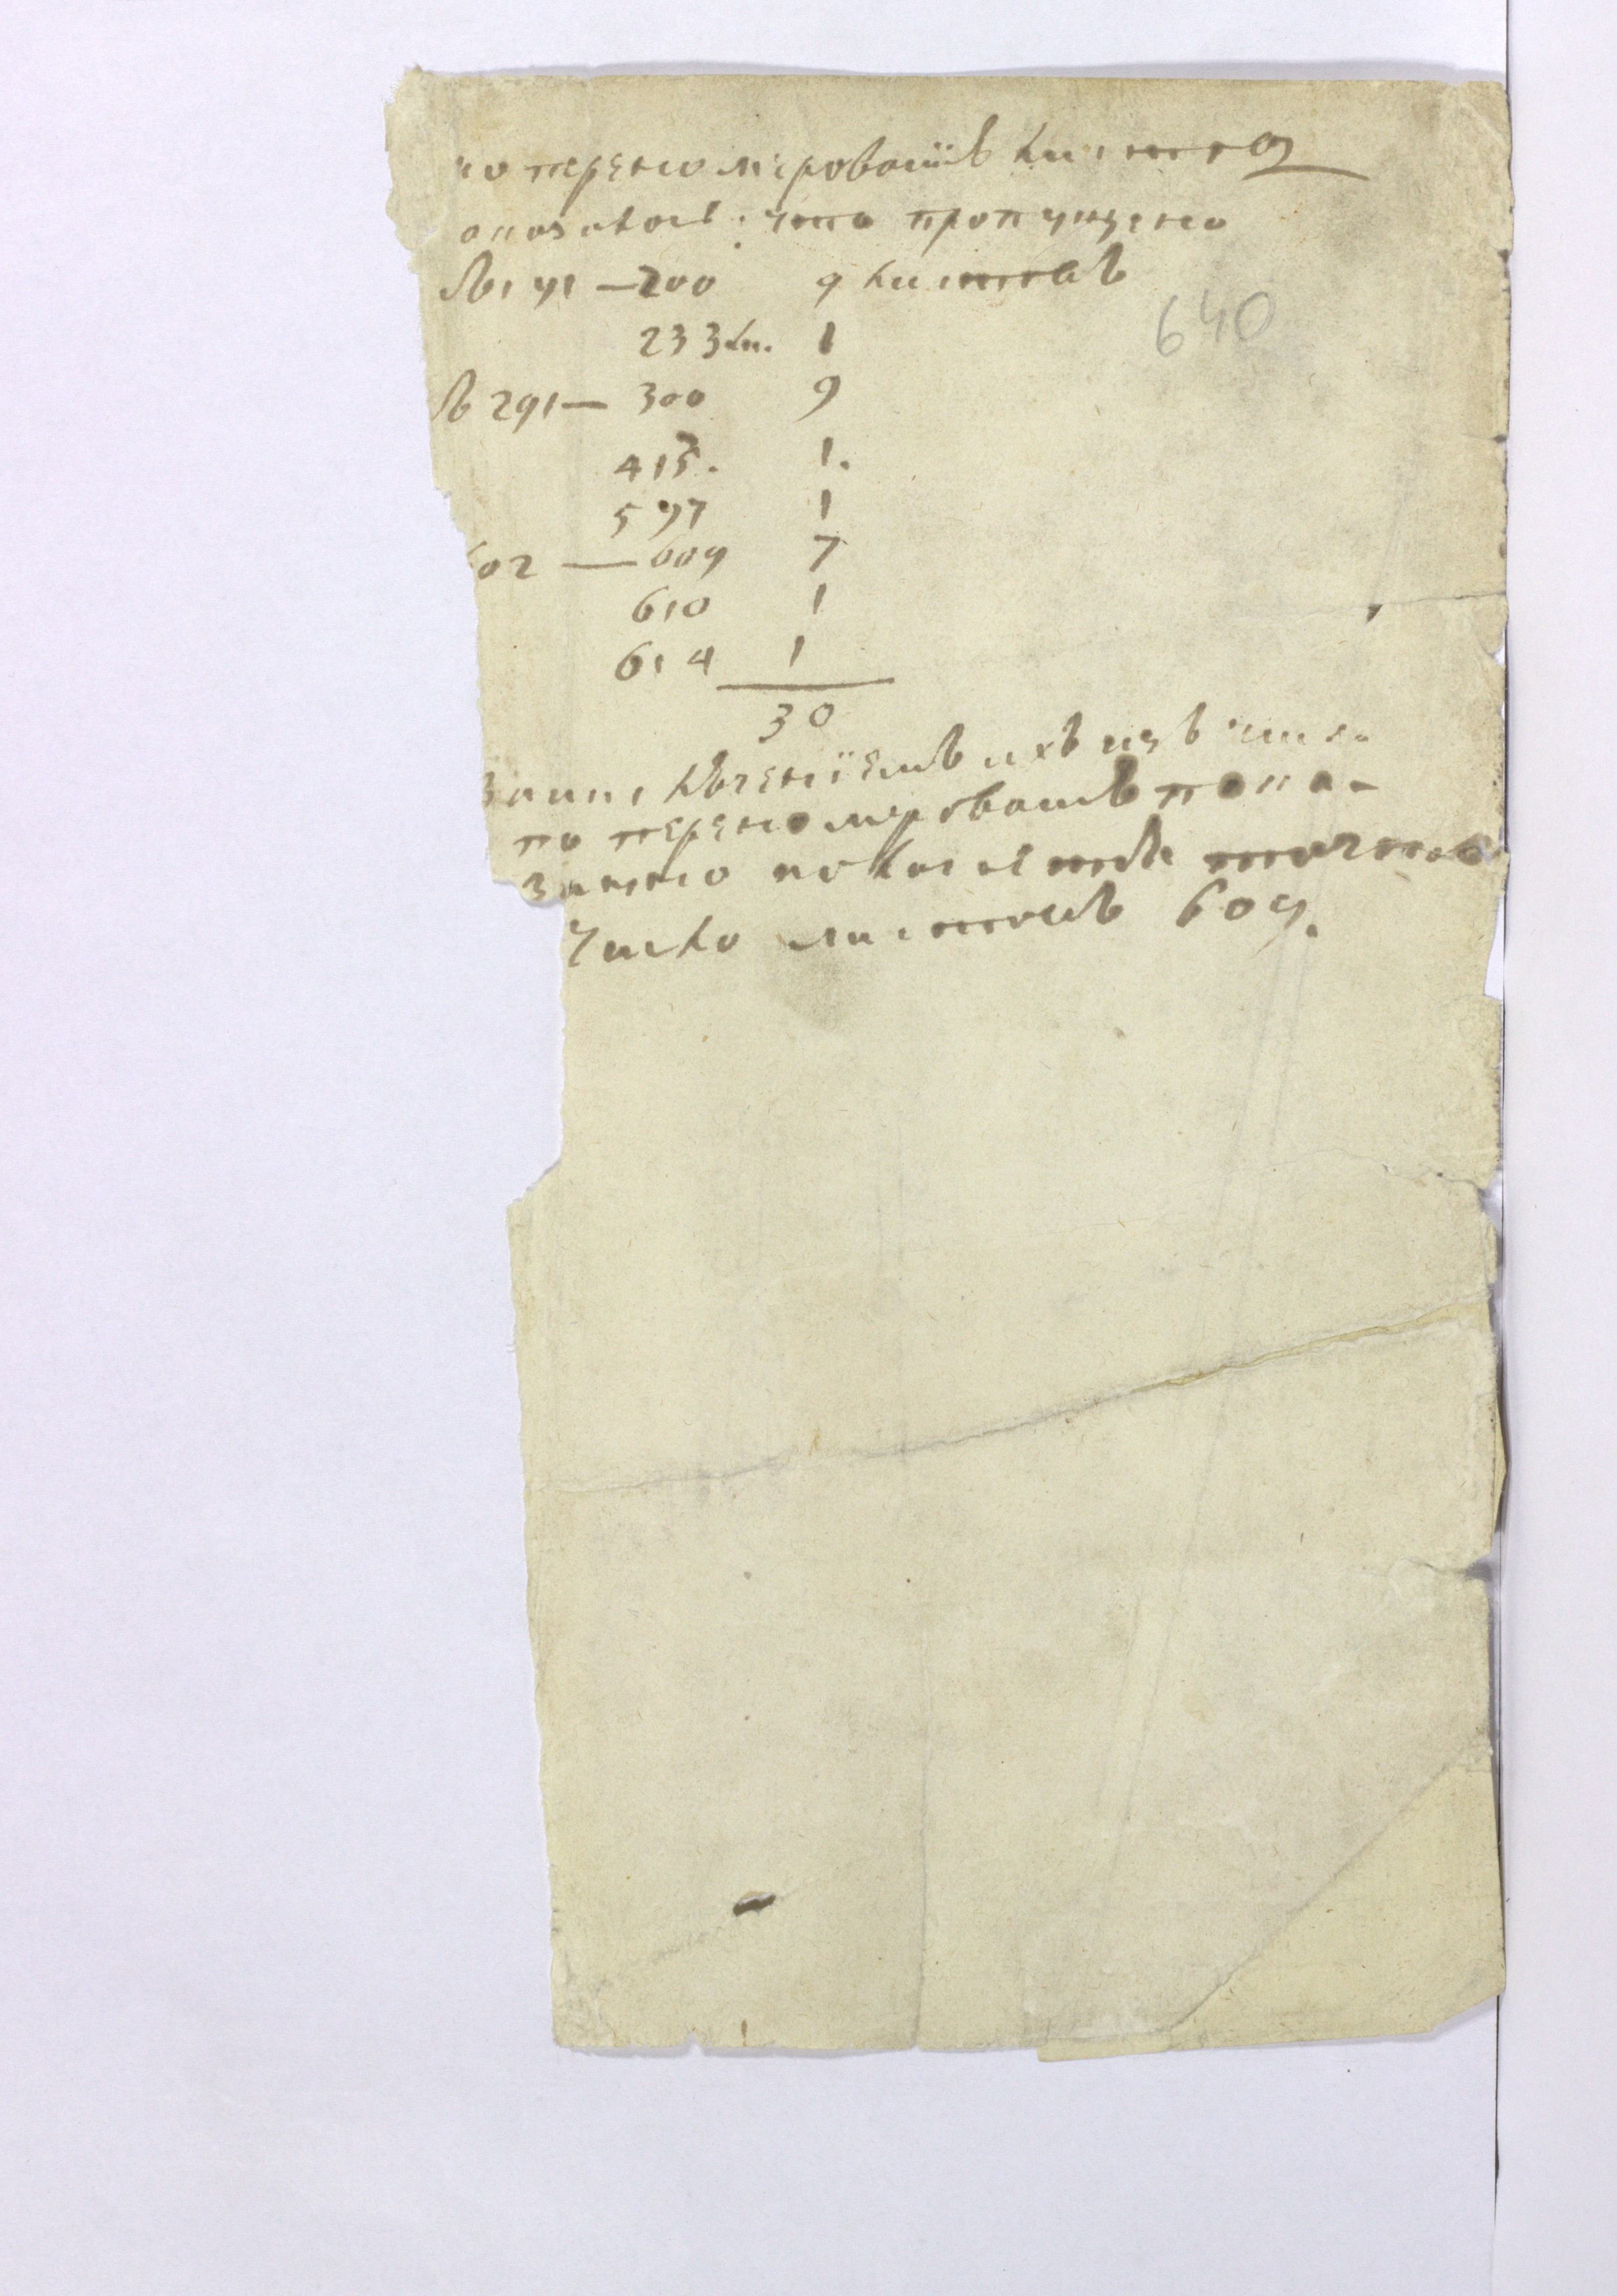 по перенумерованiи листов
оказалось: что пропущено
съ 191 — 200 9 листовъ
640
233 л. 1
съ 291 — 300 9
415. 1.
597 1
602 — 609 7
610 1
614 1
30
За иск ключенiемъ ихъ изъ числа
по перенумерован пока-
занно
число листовъ 609.